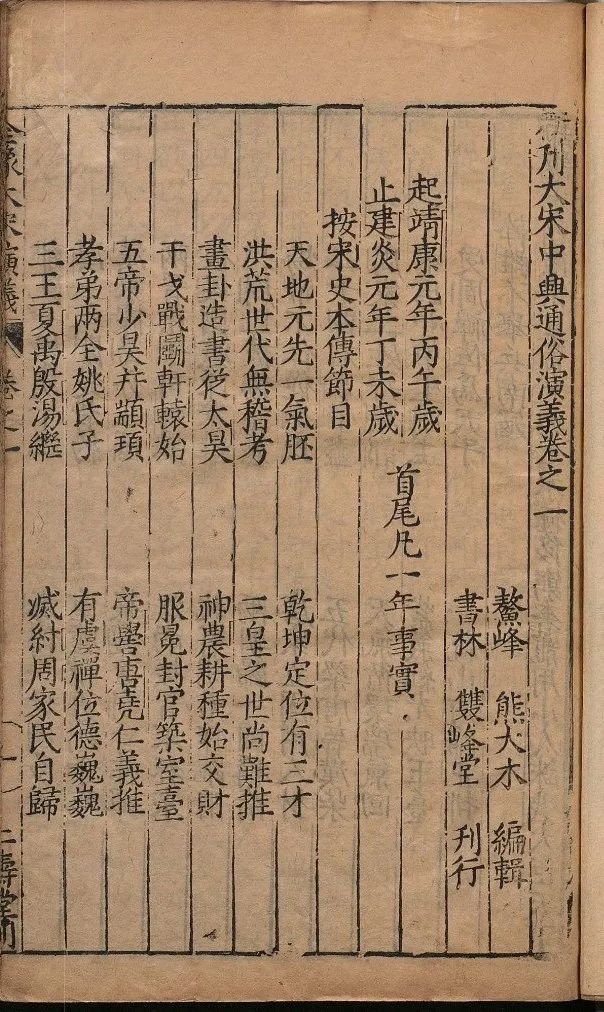 新刊大宋中興通俗演義卷之一
鰲峰 熊大木 編輯
書林 雙峰堂 刊行
起靖康元年丙午歲
止建炎元年丁未歲
首尾凡一年事實
按宋史本傳節目
天地元先一氣胚 乾坤定位有三才
洪荒世代無稽考 三皇之世尚難推
畫卦造書從太昊 神農耕種始交財
干戈戰鬬軒轅始 服冕封官築室臺
五帝少昊并顓頊 帝嚳唐堯仁義推
孝弟兩全姚氏子 有虞禪位德巍巍
三王夏禹殷湯繼 滅紂周家民自歸
全像大宋演義 卷之一